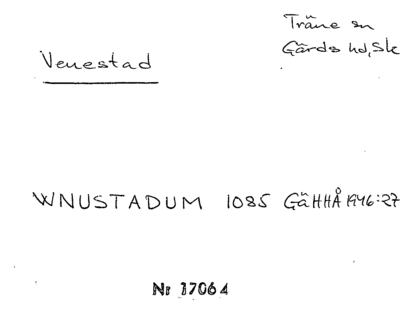 Träne sn
Venestad
Gärds hd, Sk
WNUSTADUM 1085 GäHHÅ 1946:27
Nr 17064